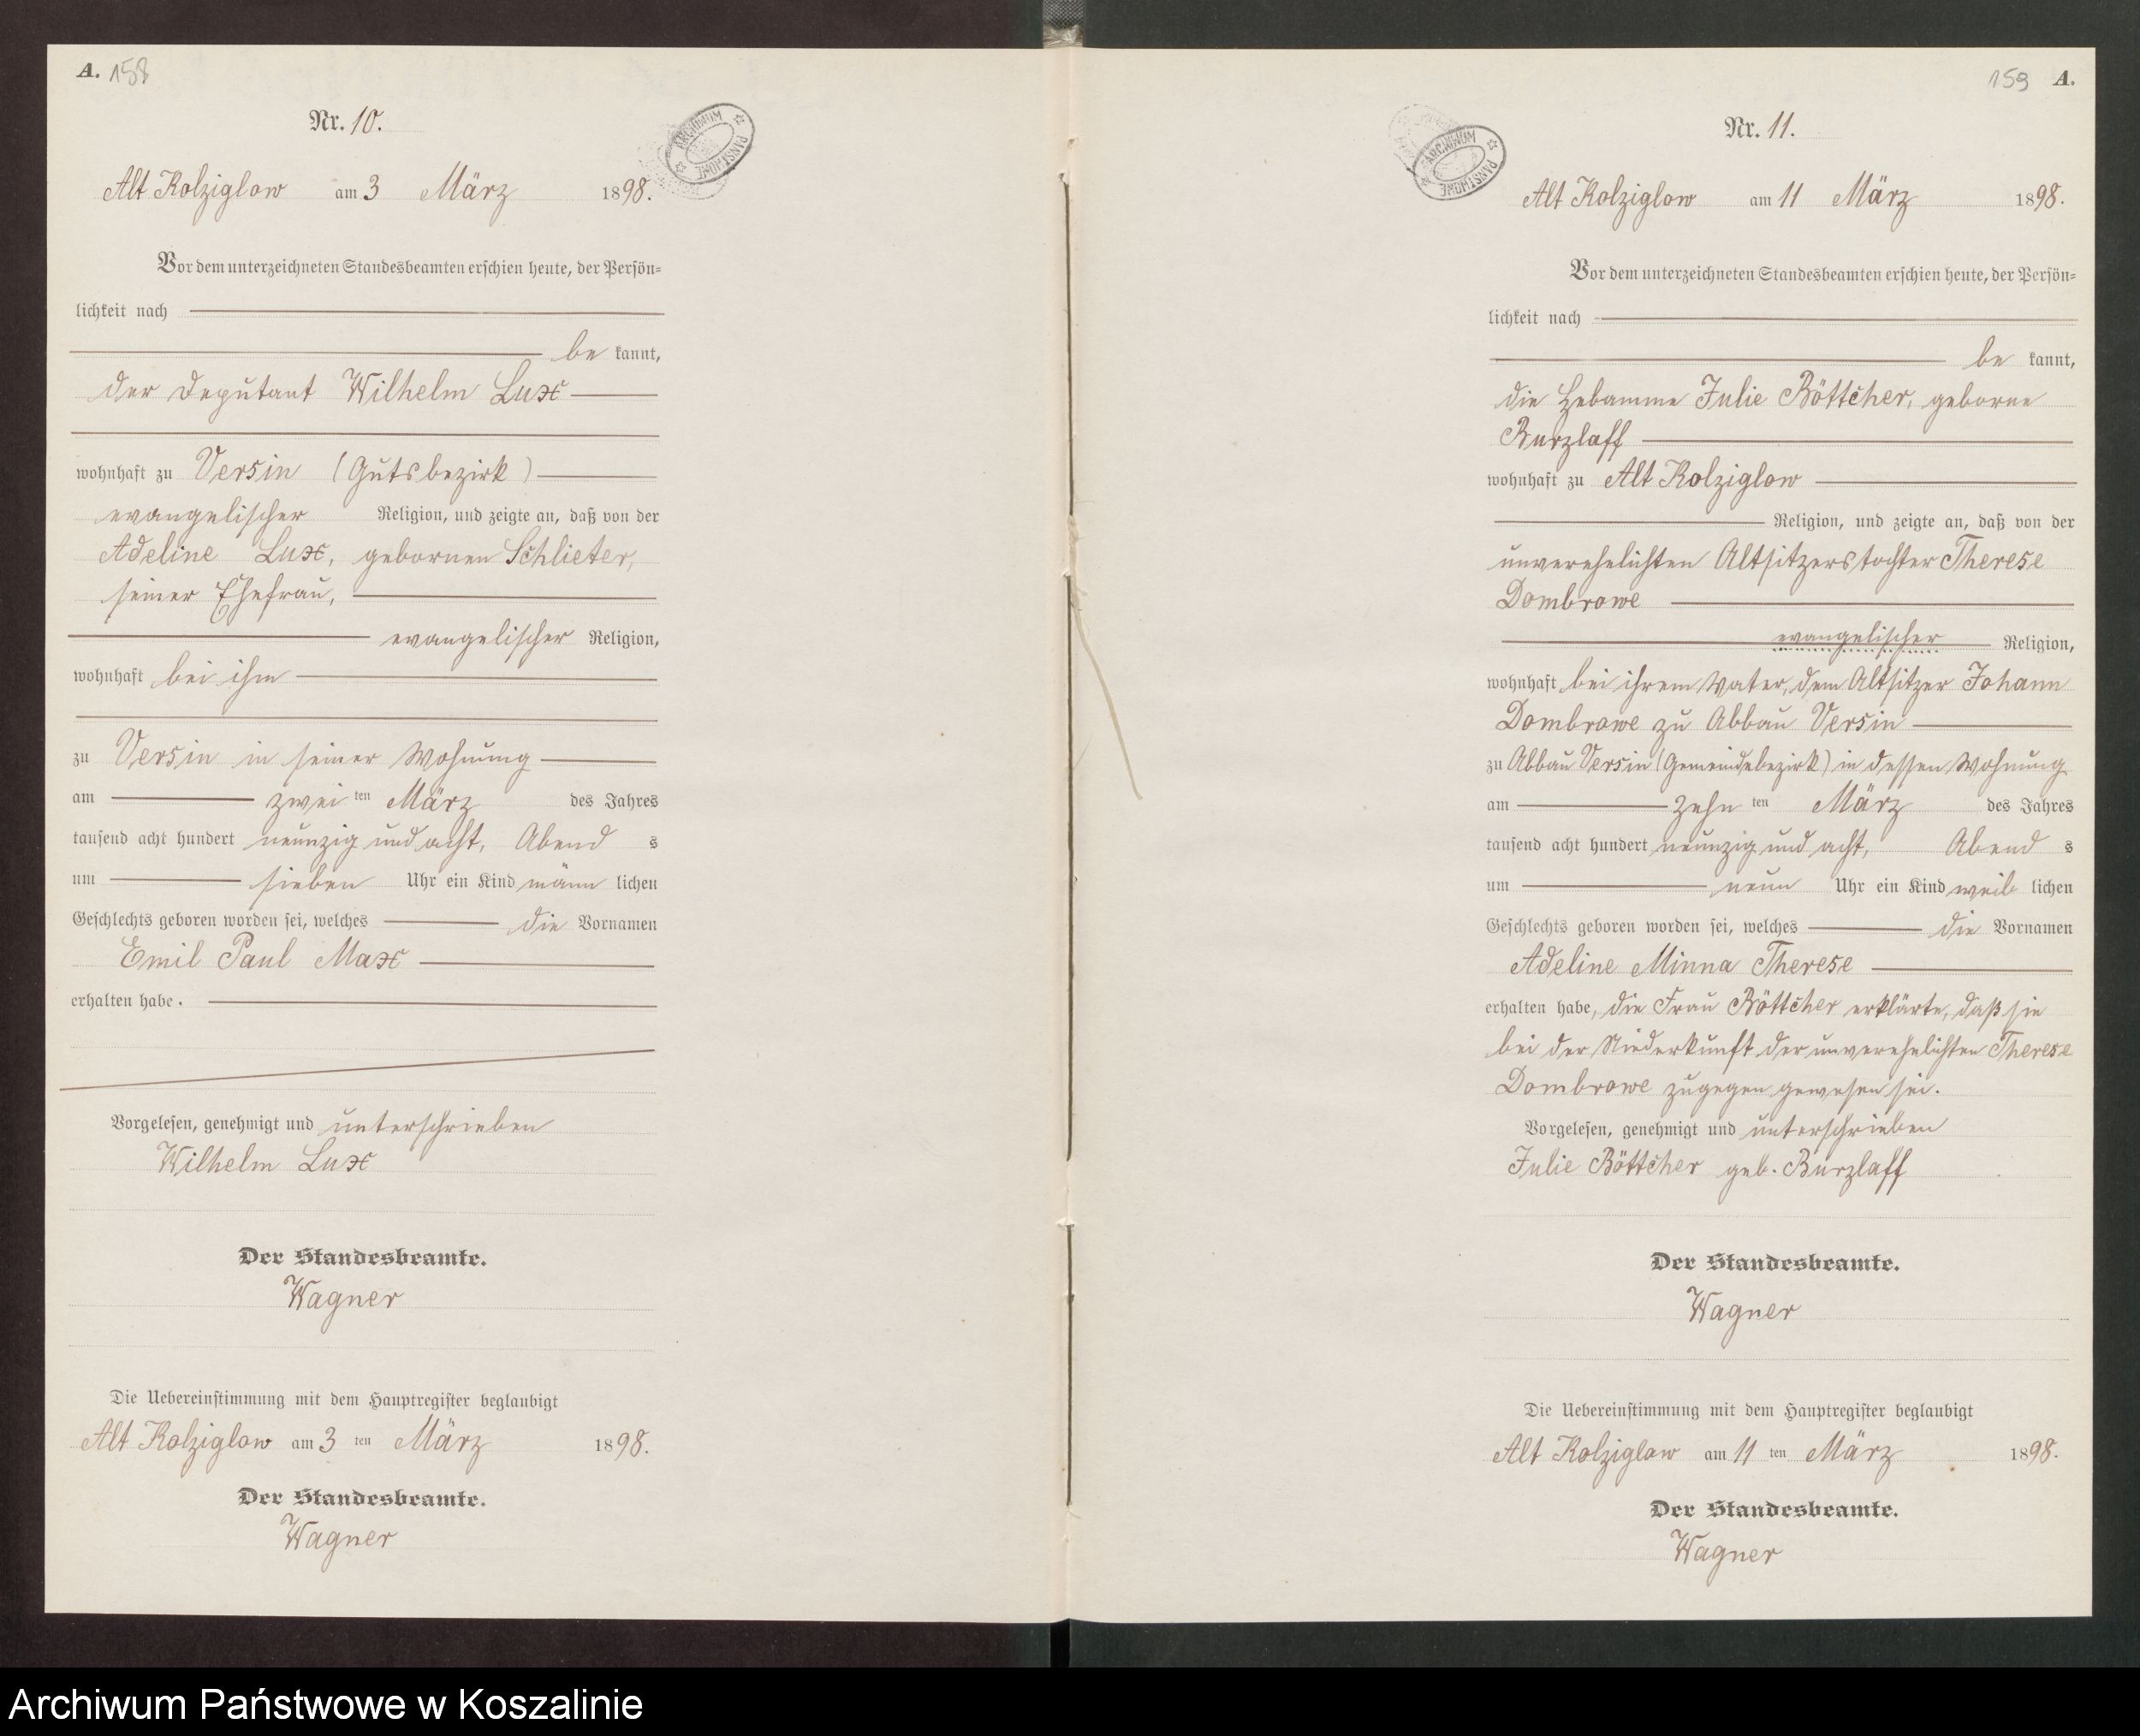 A. 158
Nr. 10.
ARCHIWUM PAŃSTWOWE
Alt Kolziglow am 3 März 1898.
Vor dem unterzeichneten Standesbeamten erschien heute, der Persön-
lichkeit nach
be kannt,
der Deputant Wilhelm Lux
wohnhaft zu Versin (Gutsbezirk)
evangelischer Religion, und zeigte an, daß von der
Adeline Lux, gebornen Schlieter,
seiner Ehefrau,
evangelischer Religion,
wohnhaft bei ihm
zu Versin in seiner Wohnung
am zwei ten März des Jahres
tausend acht hundert neunzig und acht, Abend s
um sieben Uhr ein Kind männ lichen
Geschlechts geboren worden sei, welches die Vornamen
Emil Paul Max
erhalten habe.
Vorgelesen, genehmigt und unterschrieben
Wilhelm Lux
Der Standesbeamte.
Wagner
Die Uebereinstimmung mit dem Hauptregister beglaubigt
Alt Kolziglow am 3 ten März 1898.
Der Standesbeamte.
Wagner
159 A.
Nr. 11.
ARCHIWUM PAŃSTWOWE
Alt Kolziglow am 11 März 1898.
Vor dem unterzeichneten Standesbeamten erschien heute, der Persön-
lichkeit nach
be kannt,
die Hebamme Julie Böttcher, geborne
Burzlaff
wohnhaft zu Alt Kolziglow
Religion, und zeigte an, daß von der
unverehelichten Altsitzerstochter Therese
Dombrowe
evangelischer Religion,
wohnhaft bei ihrem Vater, dem Altsitzer Johann
Dombrowe zu Abbau Versin
zu Abbau Versin (Gemeindebezirk) in dessen Wohnung
am zehn ten März des Jahres
tausend acht hundert neunzig und acht, Abend s
um neun Uhr ein Kind weib lichen
Geschlechts geboren worden sei, welches die Vornamen
Adeline Minna Therese
erhalten habe, die Frau Böttcher erklärte, daß sie
bei der Niederkunft der unverehelichten Therese
Dombrowe zugegen gewesen sei.
Vorgelesen, genehmigt und unterschrieben
Julie Böttcher geb. Burzlaff
Der Standesbeamte.
Wagner
Die Uebereinstimmung mit dem Hauptregister beglaubigt
Alt Kolziglow am 11 ten März 1898.
Der Standesbeamte.
Wagner
Archiwum Państwowe w Koszalinie